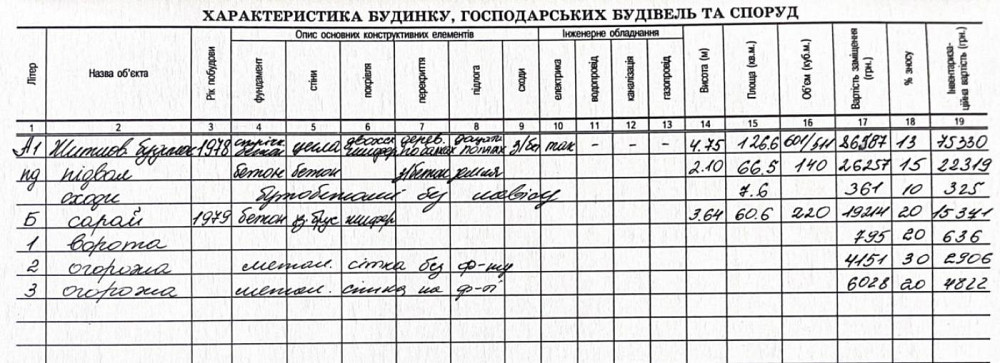 ХАРАКТЕРИСТИКА БУДИНКУ, ГОСПОДАРСЬКИХ БУДІВЕЛЬ ТА СПОРУД
Літер Назва об'єкта Рік побудови Опис основних конструктивних елементів Інженерне обладнання Висота (м) Площа (кв.м.) Об'єм (куб.м.) Вартість заміщення (грн.) % зносу Інвентариза-ційна вартість (грн.)
фундамент стіни покрівля перекриття підлога сходи електрика водопровід каналізація газопровід
1 2 3 4 5 6 7 8 9 10 11 12 13 14 15 16 17 18 19
А1 Житлов. будинок 1978 цегла шифер дерев. з/бет так - - - 4.75 126.6 601/511 86587 13 75330
пд підвал бетон бетон з/бетон земля 2.10 66.5 140 26257 15 22319
сходи бутобетонні без навісу 7.6 361 10 325
Б сарай 1979 бетон шифер 3.64 60.6 220 19214 20 15371
1 ворота 795 20 636
2 огорожа метал. сітка без ф-ту 4151 30 2906
3 огорожа метал. сітка на ф-ті 6028 20 4822